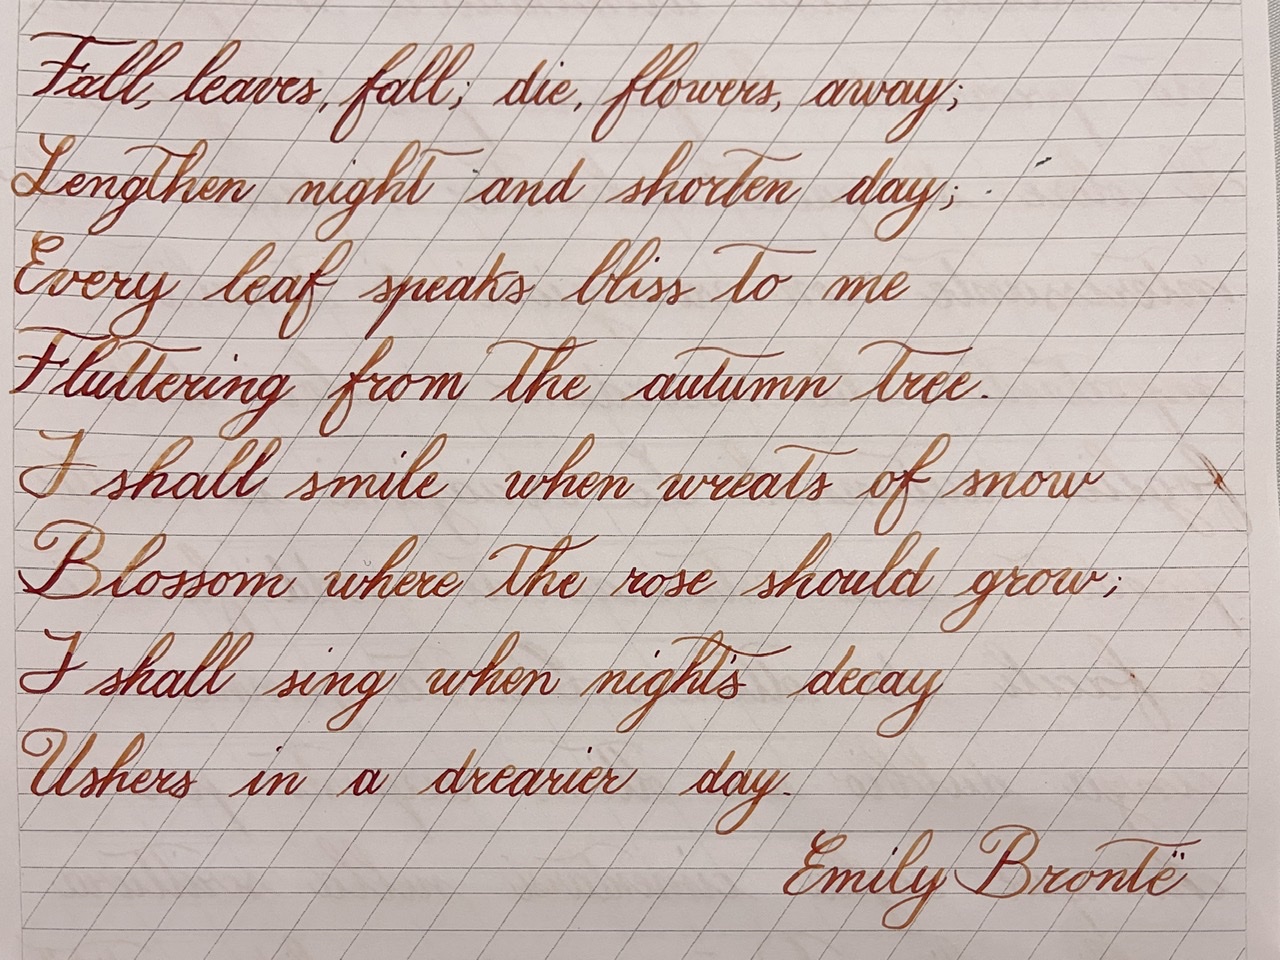 Fall, leaves, fall; die, flowers, away;
Lengthen night and shorten day;
Every leaf speaks bliss to me
Fluttering from the autumn tree.
I shall smile when wreats of snow
Blossom where the rose should grow;
I shall sing when night's decay
Ushers in a drearier day.
Emily Brontë